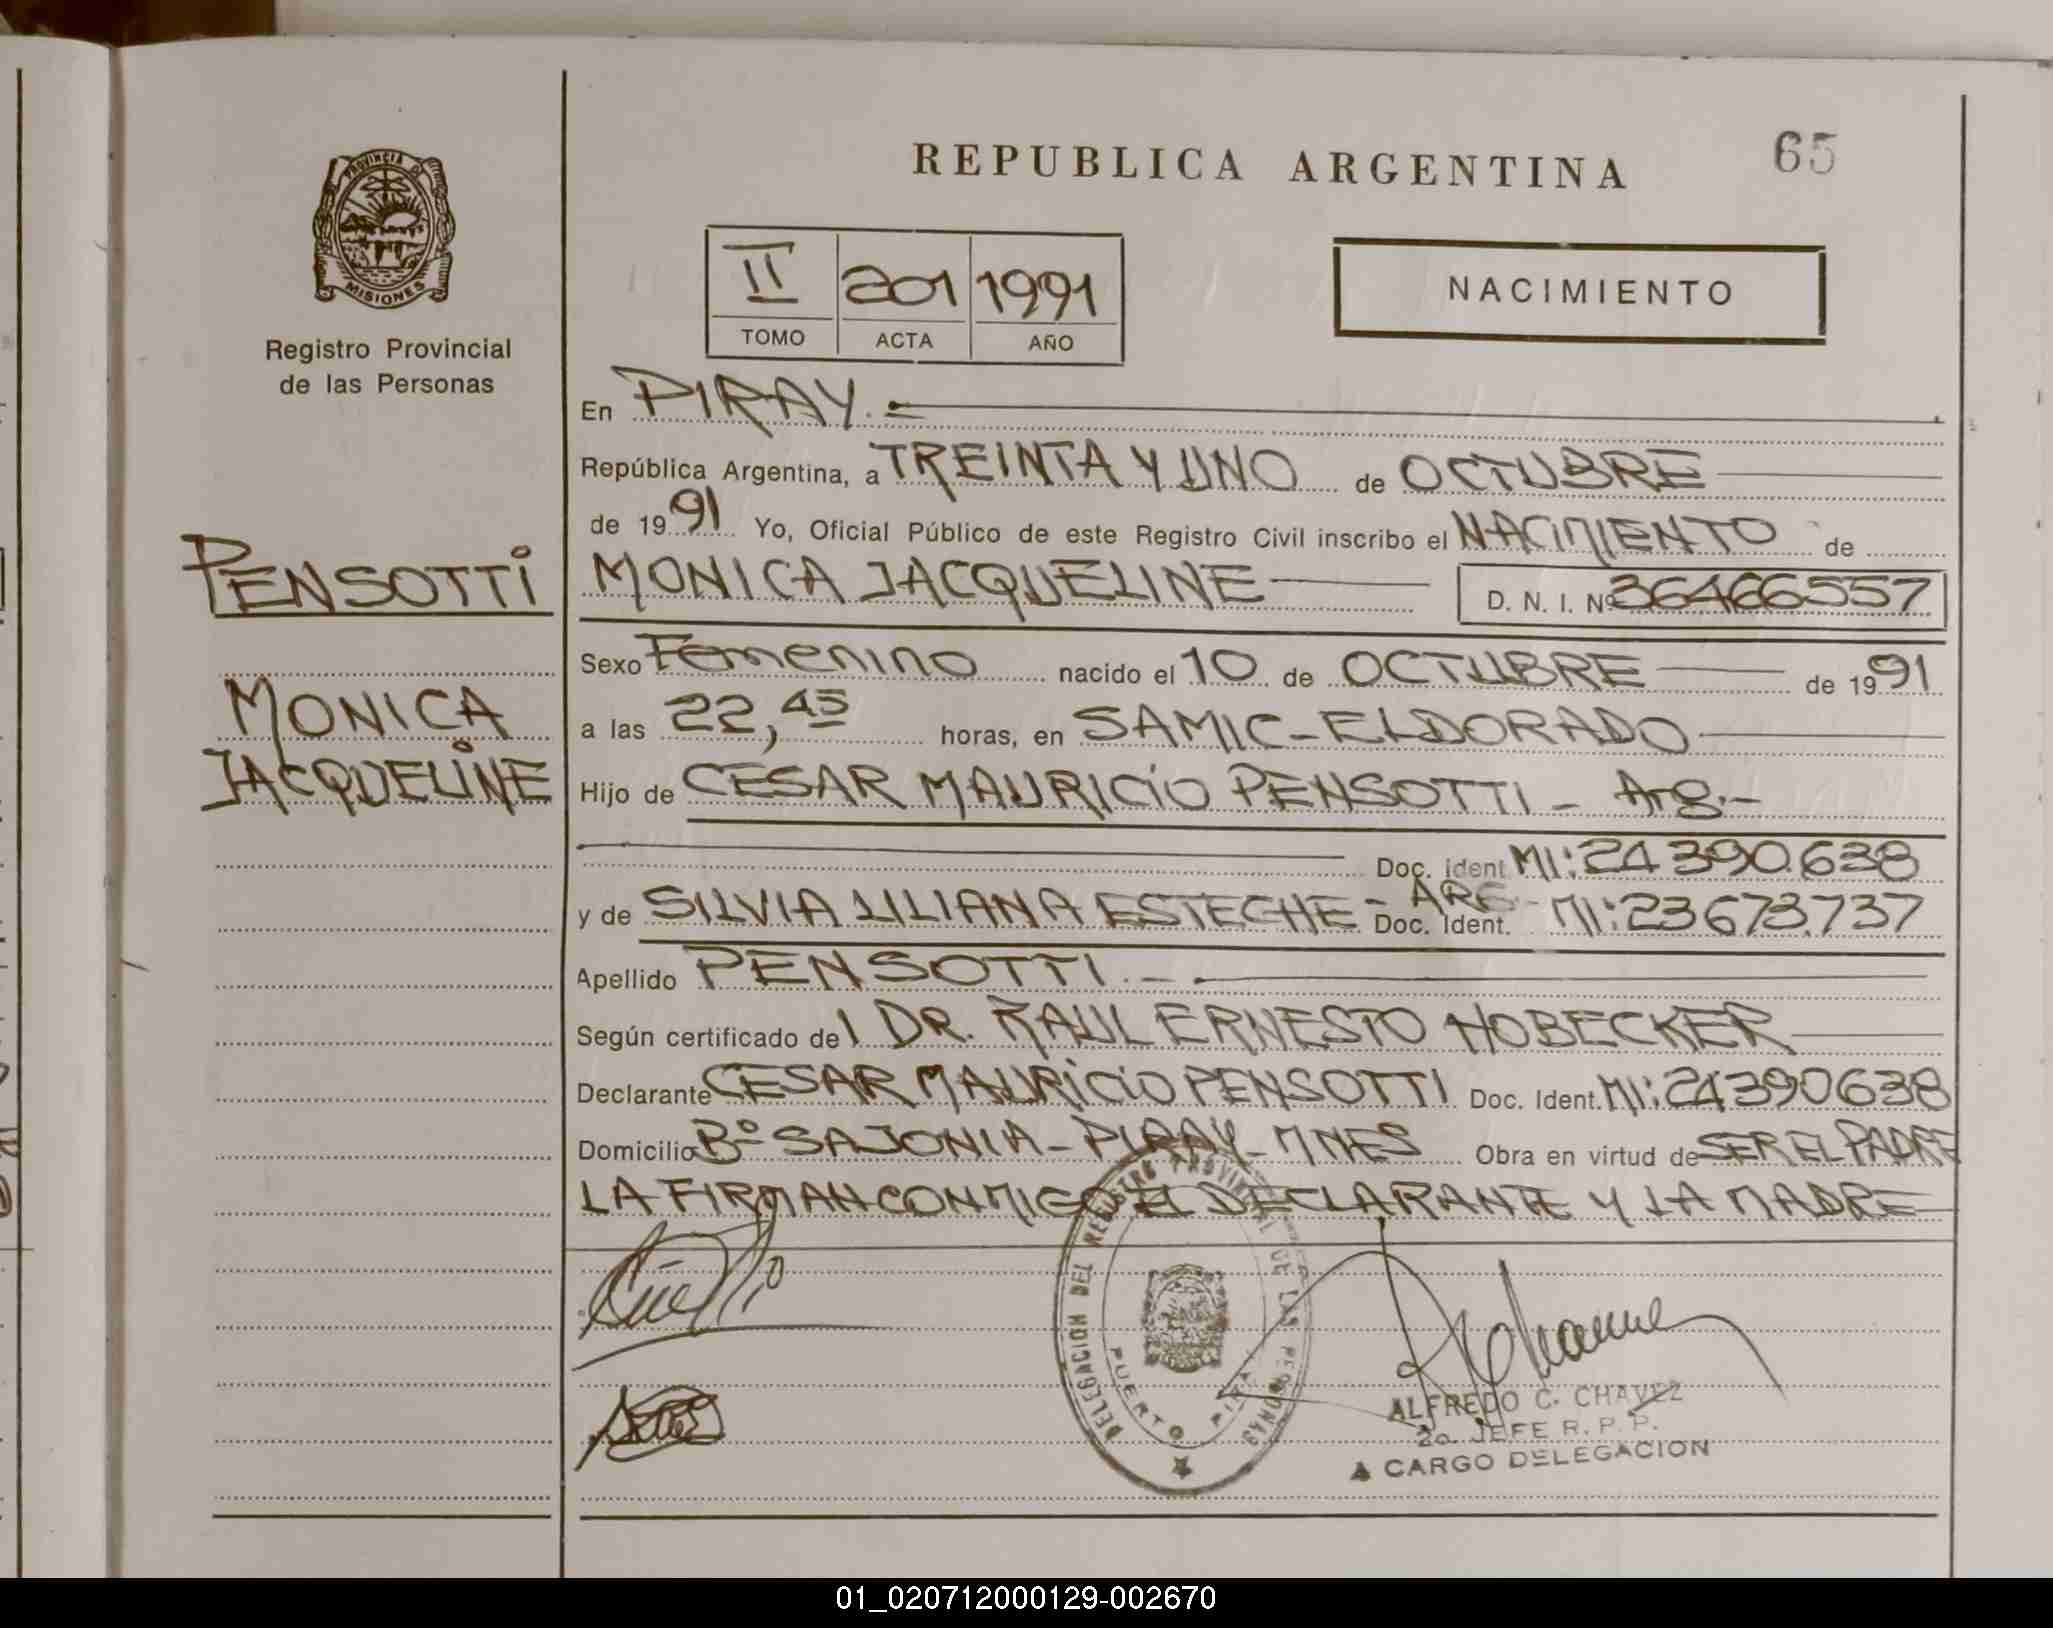 REPUBLICA ARGENTINA
65
PROVINCIA DE
MISIONES
Registro Provincial
de las Personas
II 201 1991
TOMO ACTA AÑO
NACIMIENTO
En PIRAY.
República Argentina, a TREINTA Y UNO de OCTUBRE
de 1991 Yo, Oficial Público de este Registro Civil inscribo el NACIMIENTO de
MONICA JACQUELINE D. N. I. Nº 36466557
PENSOTTI
MONICA
JACQUELINE
Sexo Femenino nacido el 10 de OCTUBRE de 1991
a las 22,45 horas, en SAMIC-ELDORADO
Hijo de CESAR MAURICIO PENSOTTI - Arg.-
Doc. Ident MI: 24 390.638
y de SILVIA LILIANA ESTECHE - ARG - Doc. Ident. MI: 23 673.737
Apellido PENSOTTI.-
Según certificado del DR. RAUL ERNESTO HOBECKER
Declarante CESAR MAURICIO PENSOTTI Doc. Ident. MI: 24390638
Domicilio Bº SAJONIA - PIRAY - MNES Obra en virtud de SER EL PADRE
LA FIRMAN CONMIGO EL DECLARANTE Y LA MADRE
DELEGACION DEL REGISTRO PROVINCIAL DE LAS PERSONAS
PUERTO PIRAY
ALFREDO C. CHAVEZ
2o. JEFE R. P. P.
A CARGO DELEGACION
01_020712000129-002670